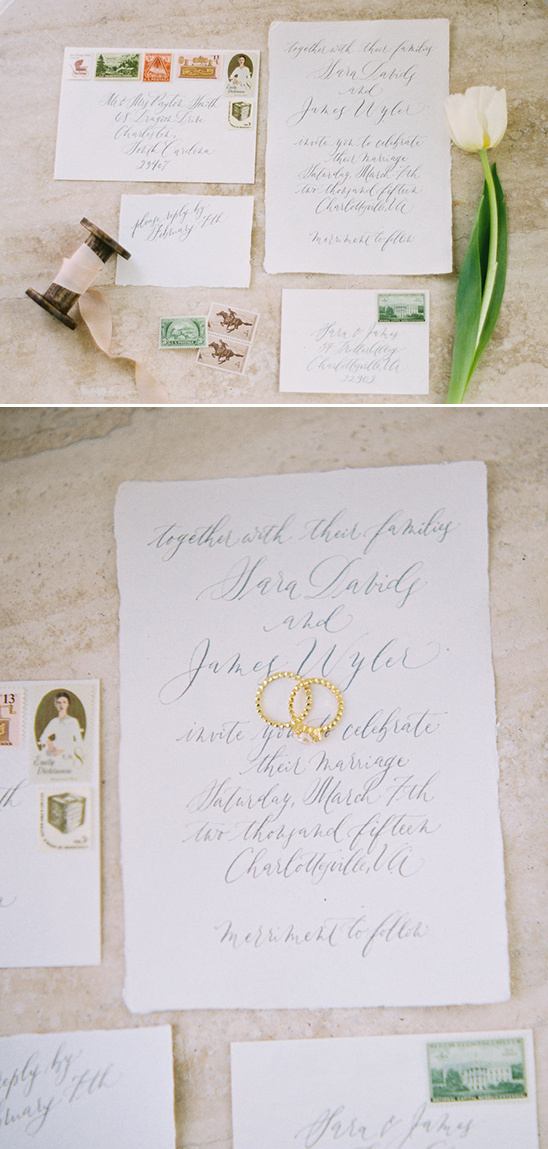 Mr & Mrs Payton Smith
68 Dragon Drive
Charleston,
South Carolina
29407
Emily
Dickinson
13
8
together with their families
Sara Davids
and
James Wyler
invite you to celebrate
their marriage
Saturday, March 7th
two thousand fifteen
Charlottesville, VA
merriment to follow
please reply by
February 7th
U.S. POSTAGE
Sara & James
Charlottesville, VA
22903
together with their families
Sara Davids
and
James Wyler
invite you to celebrate
their marriage
Saturday, March 7th
two thousand fifteen
Charlottesville, VA
merriment to follow
13
Emily
Dickinson
8
th
reply by
ruary 7th
Sara & James